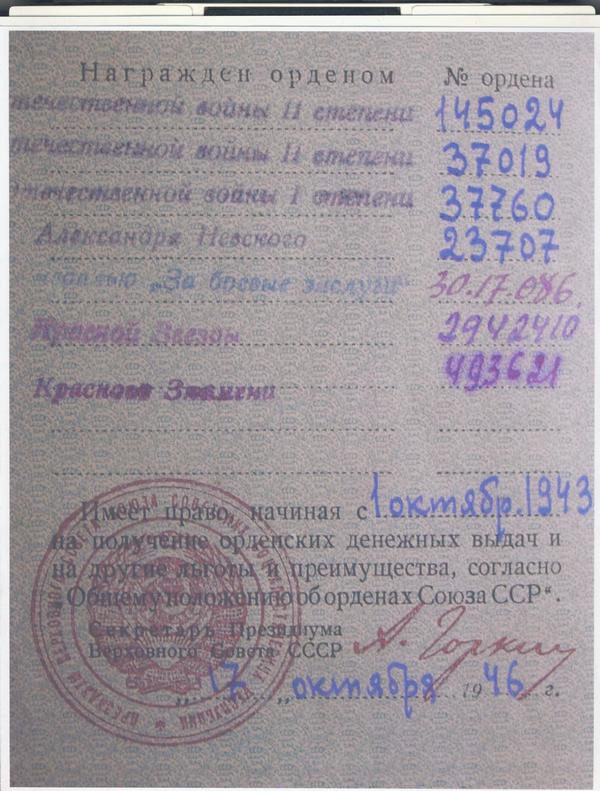 Награжден орденом № ордена
течественной войны II степени 145024
течественной войны II степени 37019
Отечественной войны I степени 37760
Александра Невского 23707
медалью „За боевые заслуги“ 30.17.086.
Красной Звезды 2942410
Красного Знамени 493621
Имеет право, начиная с 1 октябр. 1943
на получение орденских денежных выдач и
на другие льготы и преимущества, согласно
„Общему положению об орденах Союза ССР“.
Секретарь Президиума
Верховного Совета СССР А. Горкин
„17„ октября 1946 г.